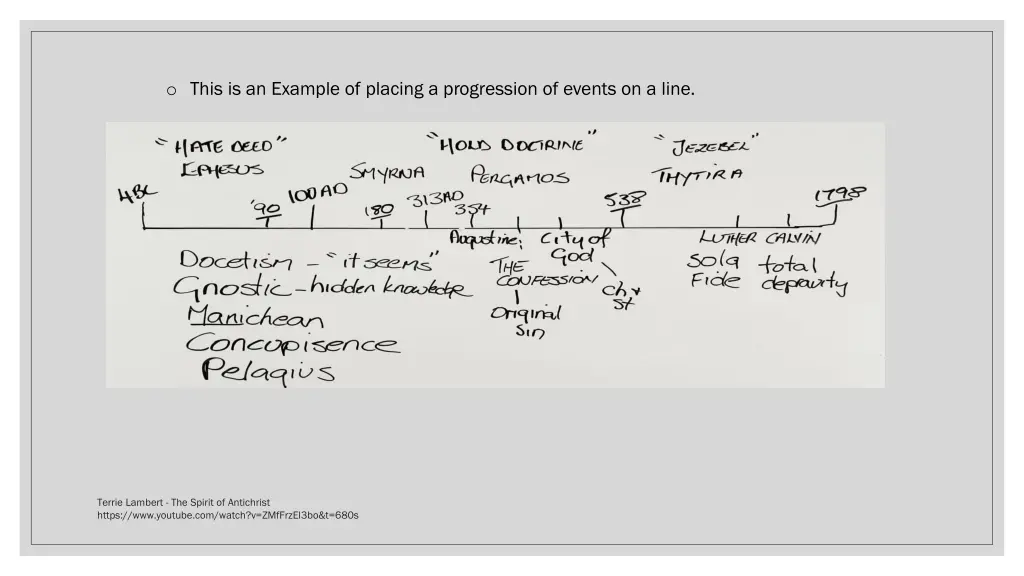 o This is an Example of placing a progression of events on a line.
"HATE DEED" "HOLD DOCTRINE" "JEZEBEL"
EPHESUS SMYRNA PERGAMOS THYTIRA
4BC '90 100AD 180 313AD 354 538 1798
Augustine; City of God LUTHER CALVIN
THE CONFESSION ch & st Sola Fide total depravity
Original Sin
Docetism - "it seems"
Gnostic - hidden knowledge
Manichean
Concupisence
Pelagius
Terrie Lambert - The Spirit of Antichrist
https://www.youtube.com/watch?v=ZMfFrzEl3bo&t=680s